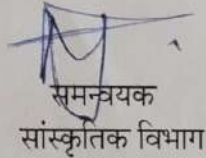 समन्वयक
सांस्कृतिक विभाग